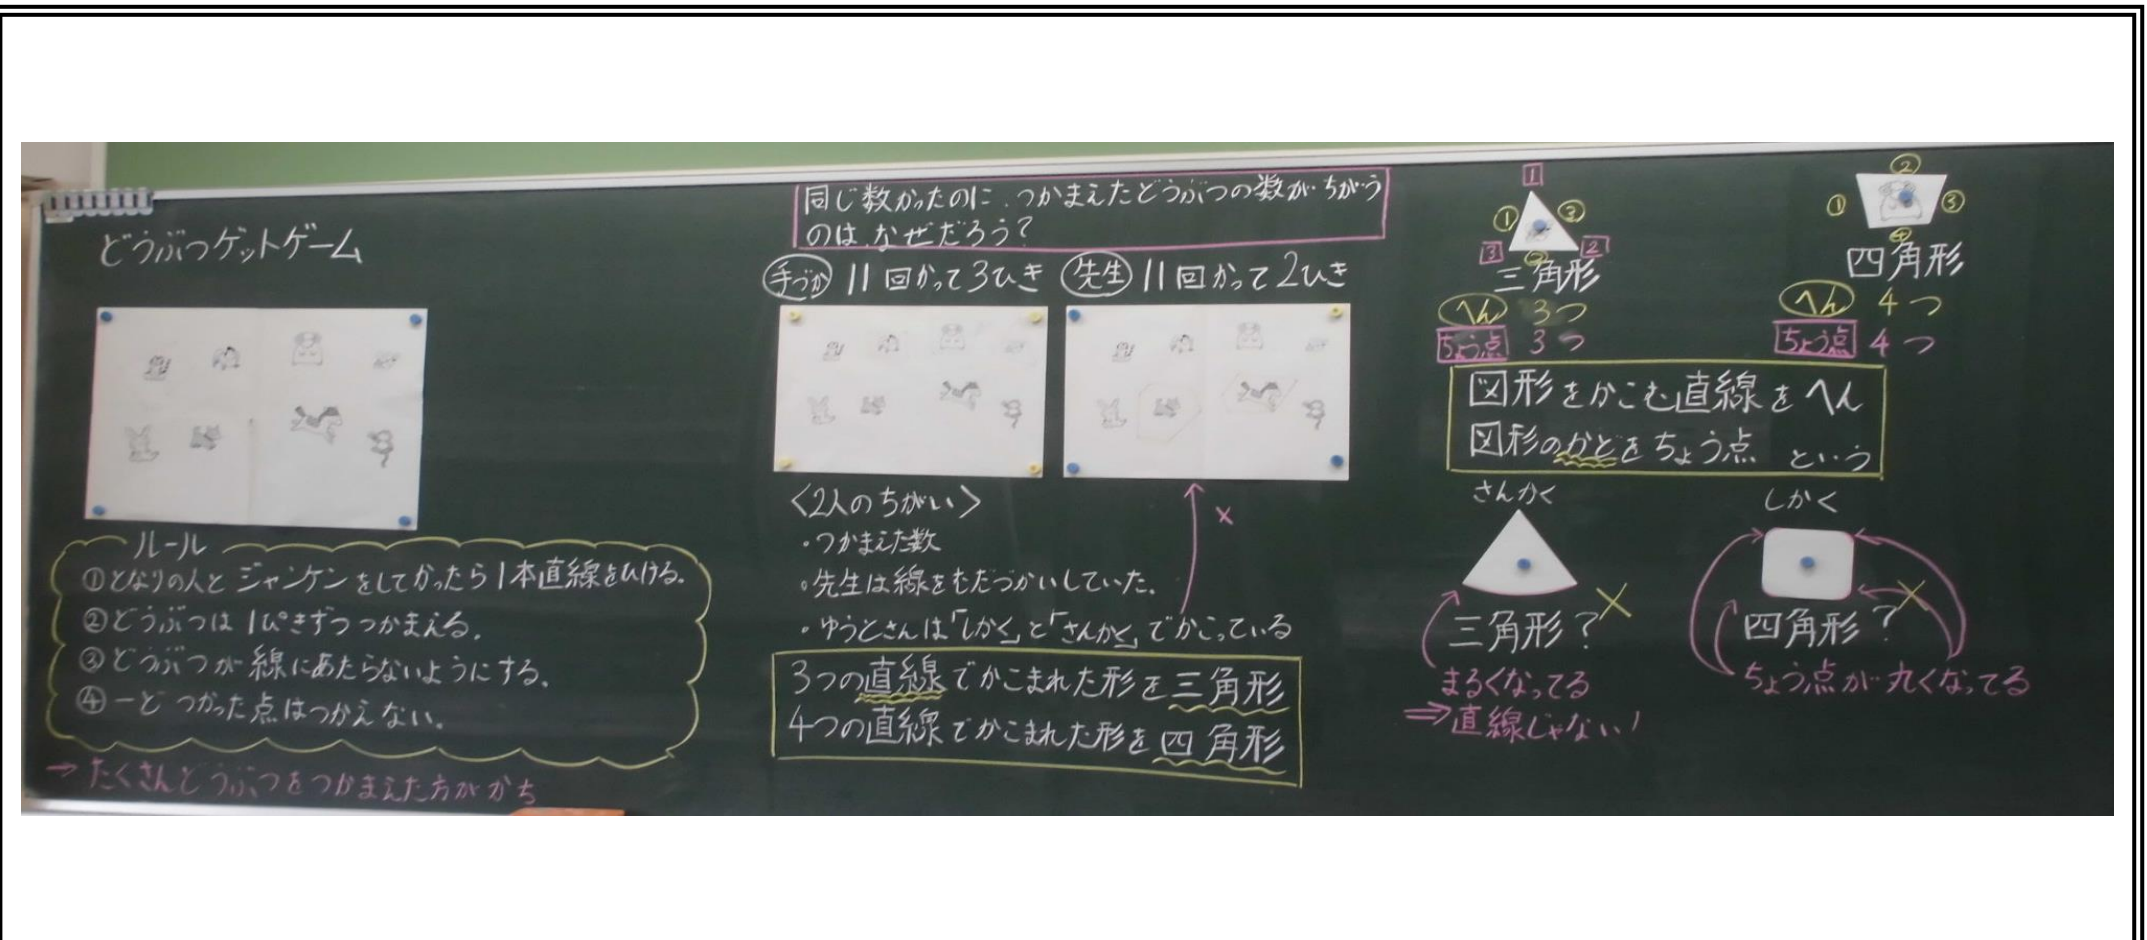 どうぶつゲットゲーム
ルール
①となりの人とジャンケンをしてかったら1本直線をひける。
②どうぶつは1ぴきずつつかまえる。
③どうぶつが線にあたらないようにする。
④一どつかった点はつかえない。
→たくさんどうぶつをつかまえた方がかち
同じ数かったのに、つかまえたどうぶつの数がちがう
のはなぜだろう？
手づか 11回かって3ひき
先生 11回かって2ひき
<2人のちがい>
・つかまえた数
・先生は線をむだづかいしていた。
・ゆうとさんは「しかく」と「さんかく」でかこっている
×
3つの直線でかこまれた形を三角形
4つの直線でかこまれた形を四角形
1
① ③
3 ② 2
三角形
へん 3つ
ちょう点 3つ
②
① ③
④
四角形
へん 4つ
ちょう点 4つ
図形をかこむ直線をへん
図形のかどをちょう点 という
さんかく
三角形？×
まるくなってる
⇒直線じゃない！
しかく
四角形？×
ちょう点が丸くなってる